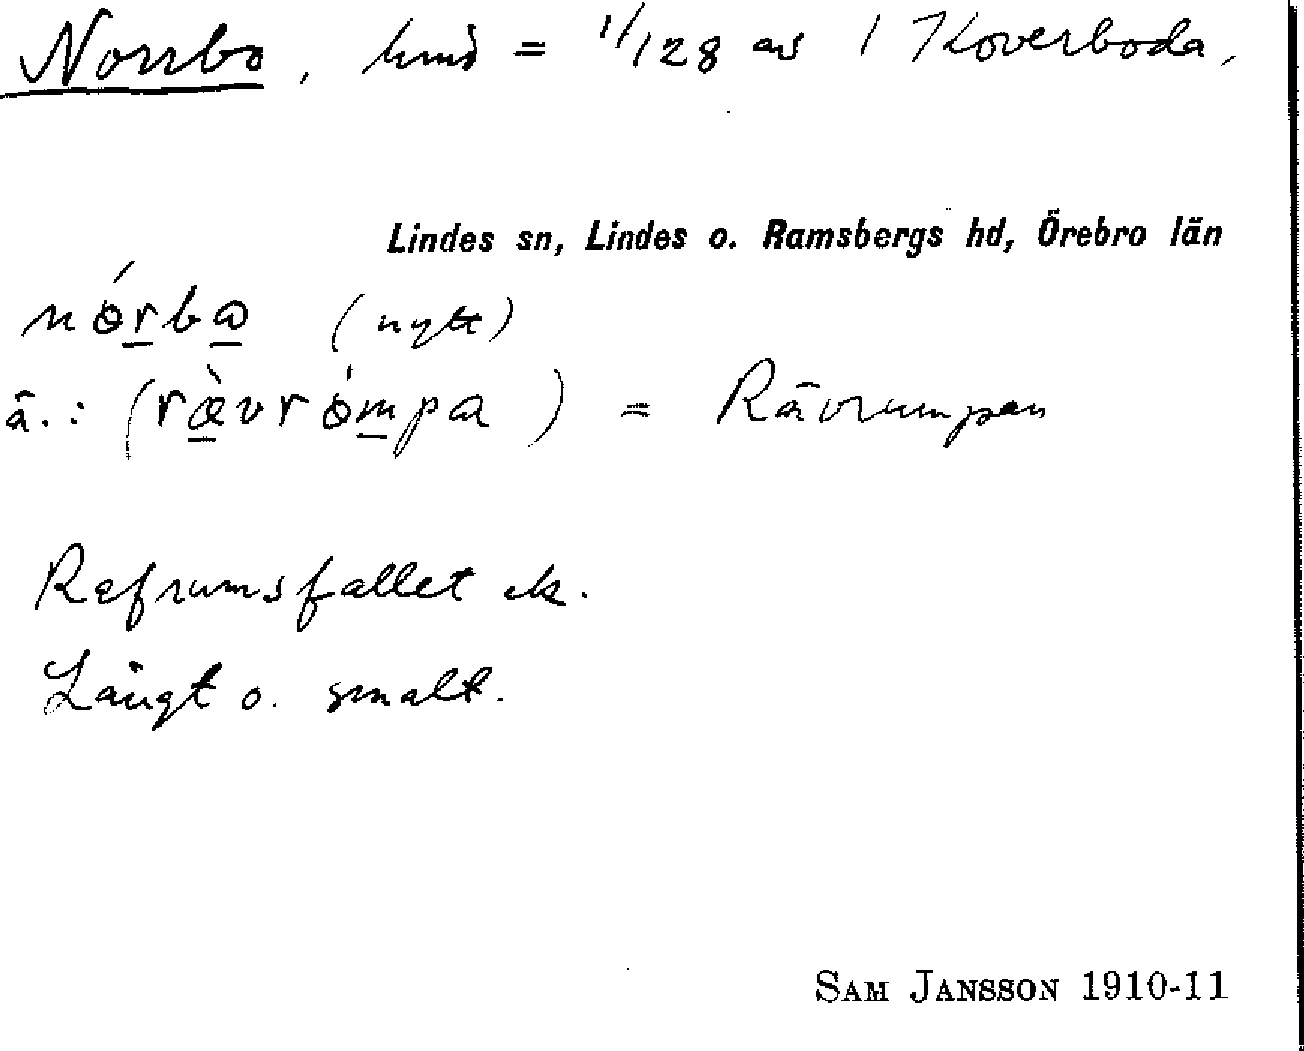 Norrbo, hmd = 1/128 av 1 Koverboda,
Lindes sn, Lindes o. Ramsbergs hd, Örebro län
(nytt)
ä.: = Rävrumpan
Refrumsfallet ek.
Långt o. smalt.
SAM JANSSON 1910-11